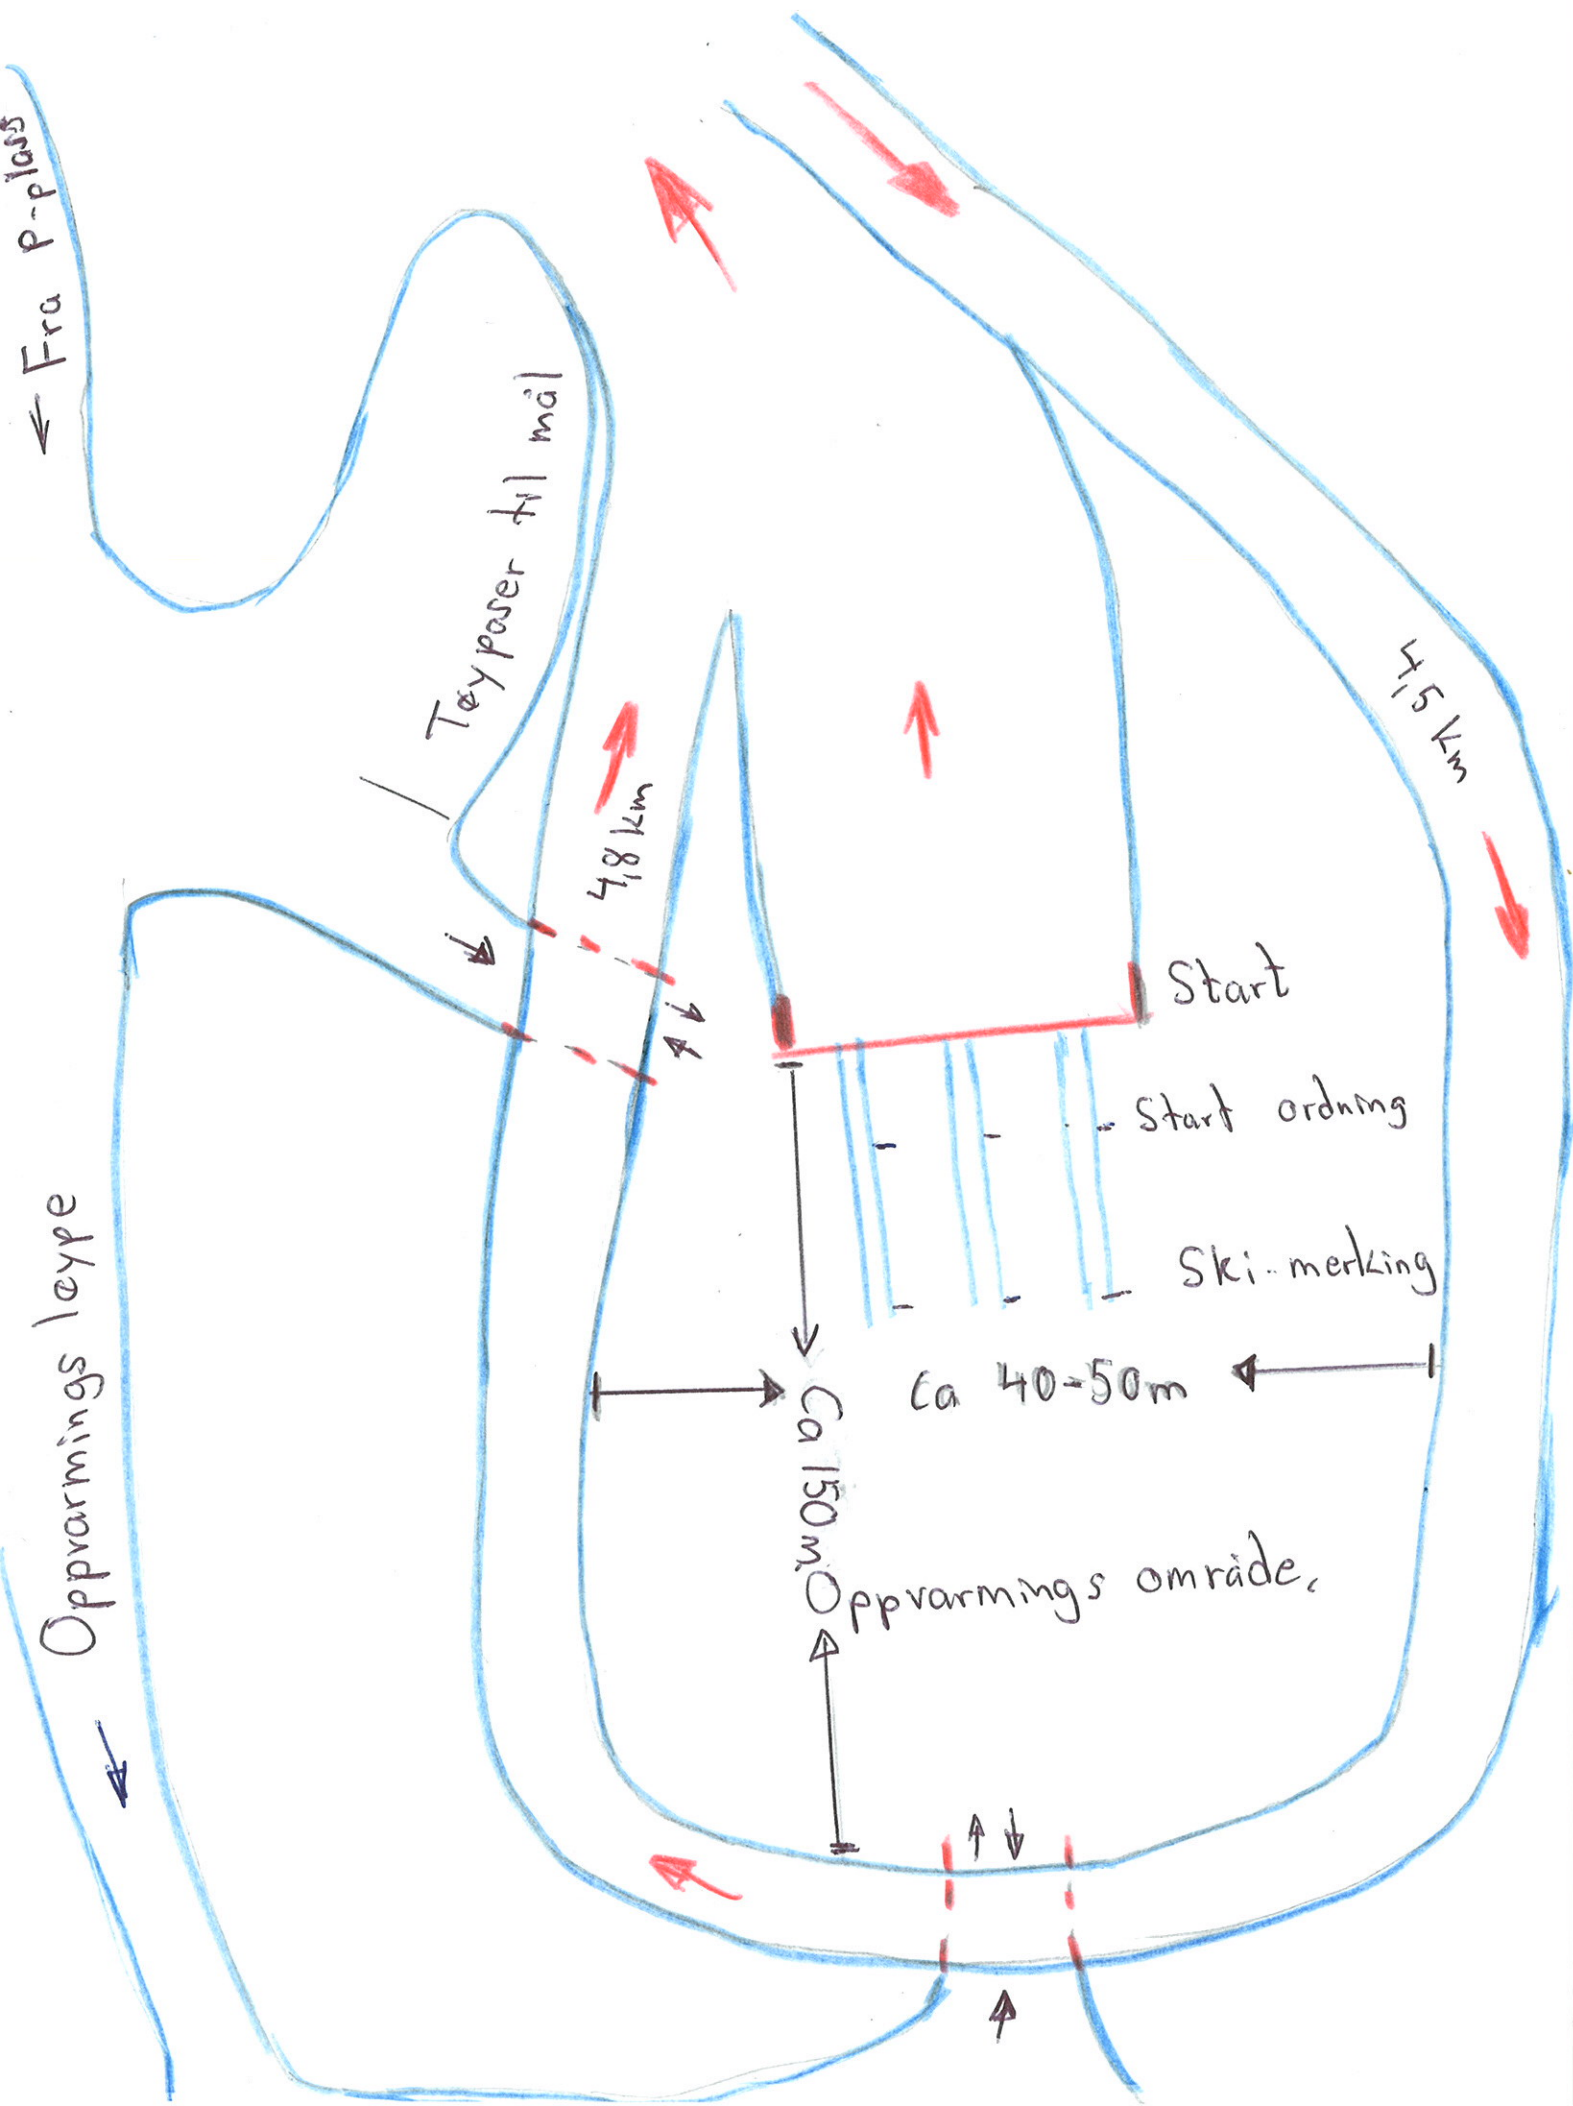 ← Fra p-plass
Tøyposer til mål
4,5 km
4,8 km
Start
Start ordning
Ski-merking
Ca 40-50m
Ca 150m
Oppvarmings område.
Oppvarmings løype